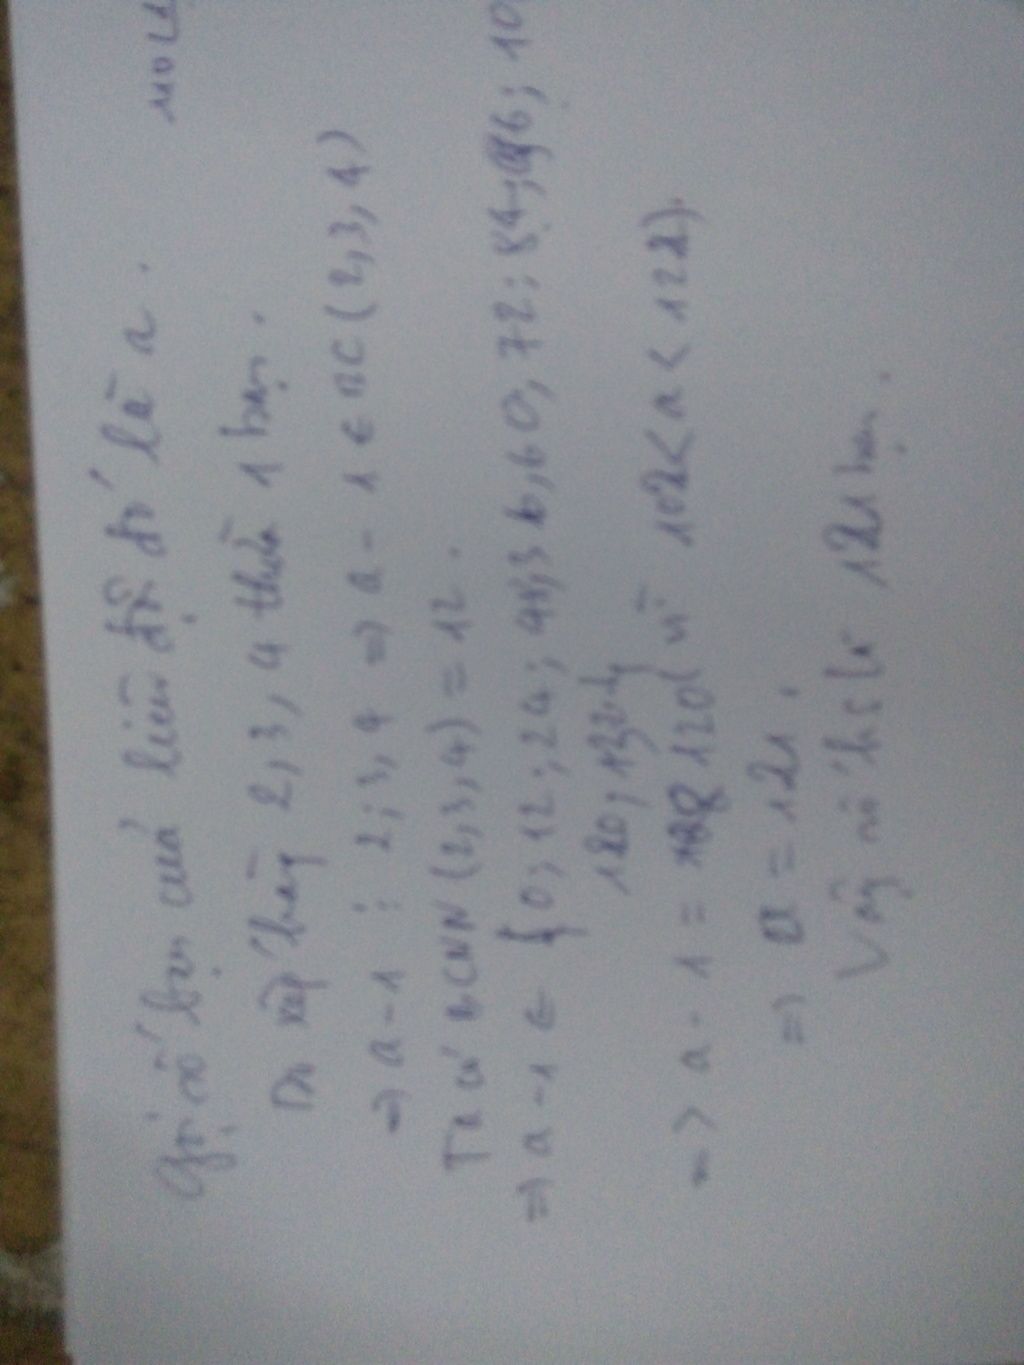 Gọi số bạn của liên đội đó là a.
Do xếp hàng 2, 3, 4 thừa 1 bạn.
=) a - 1 ⋮ 2; 3, 4 =) a - 1 ∈ BC (2, 3, 4)
Ta có BCNN (2, 3, 4) = 12.
=) a - 1 ∈ {0; 12; 24; 48, 60, 72; 84; 96; 10
120, 132..}
=> a - 1 = 120 (vì 102 < a < 122).
=) a = 121.
Vậy số hs là 121 bạn.